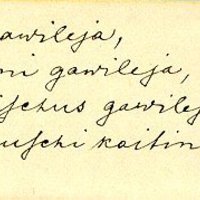 gawileja,
ni gawileja,
ischus gawilej
uschi kaitin